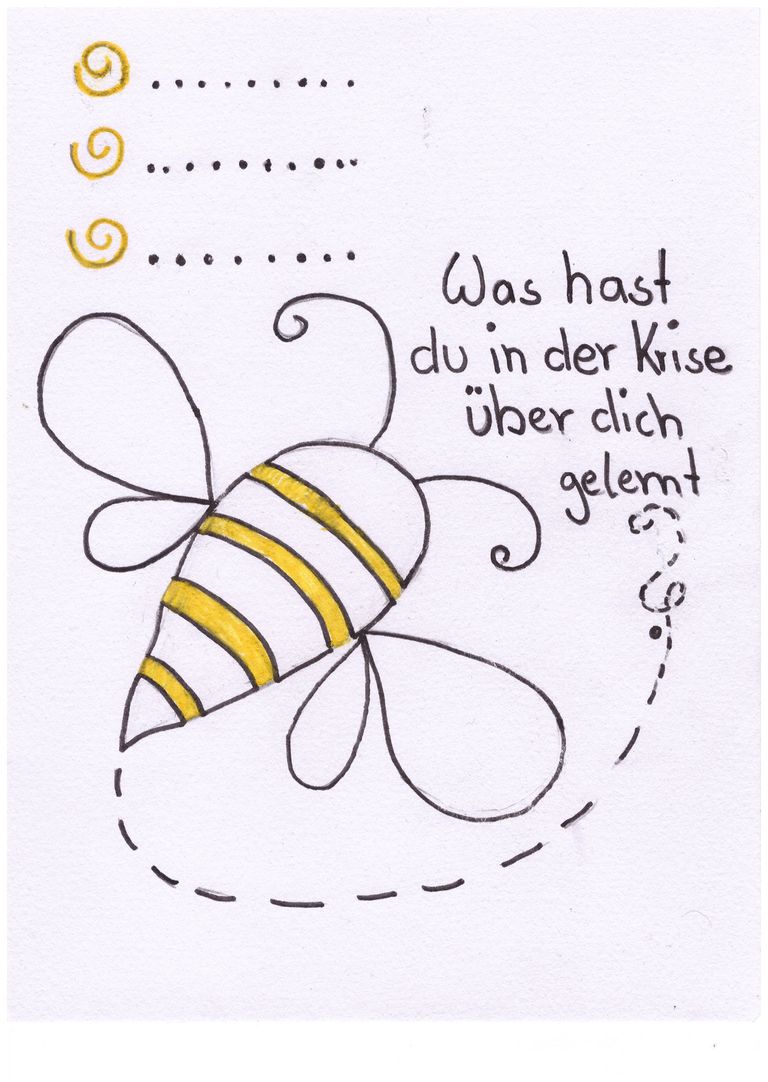 Was hast
du in der Krise
über dich
gelernt